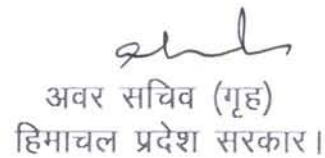 अवर सचिव (गृह)
हिमाचल प्रदेश सरकार।